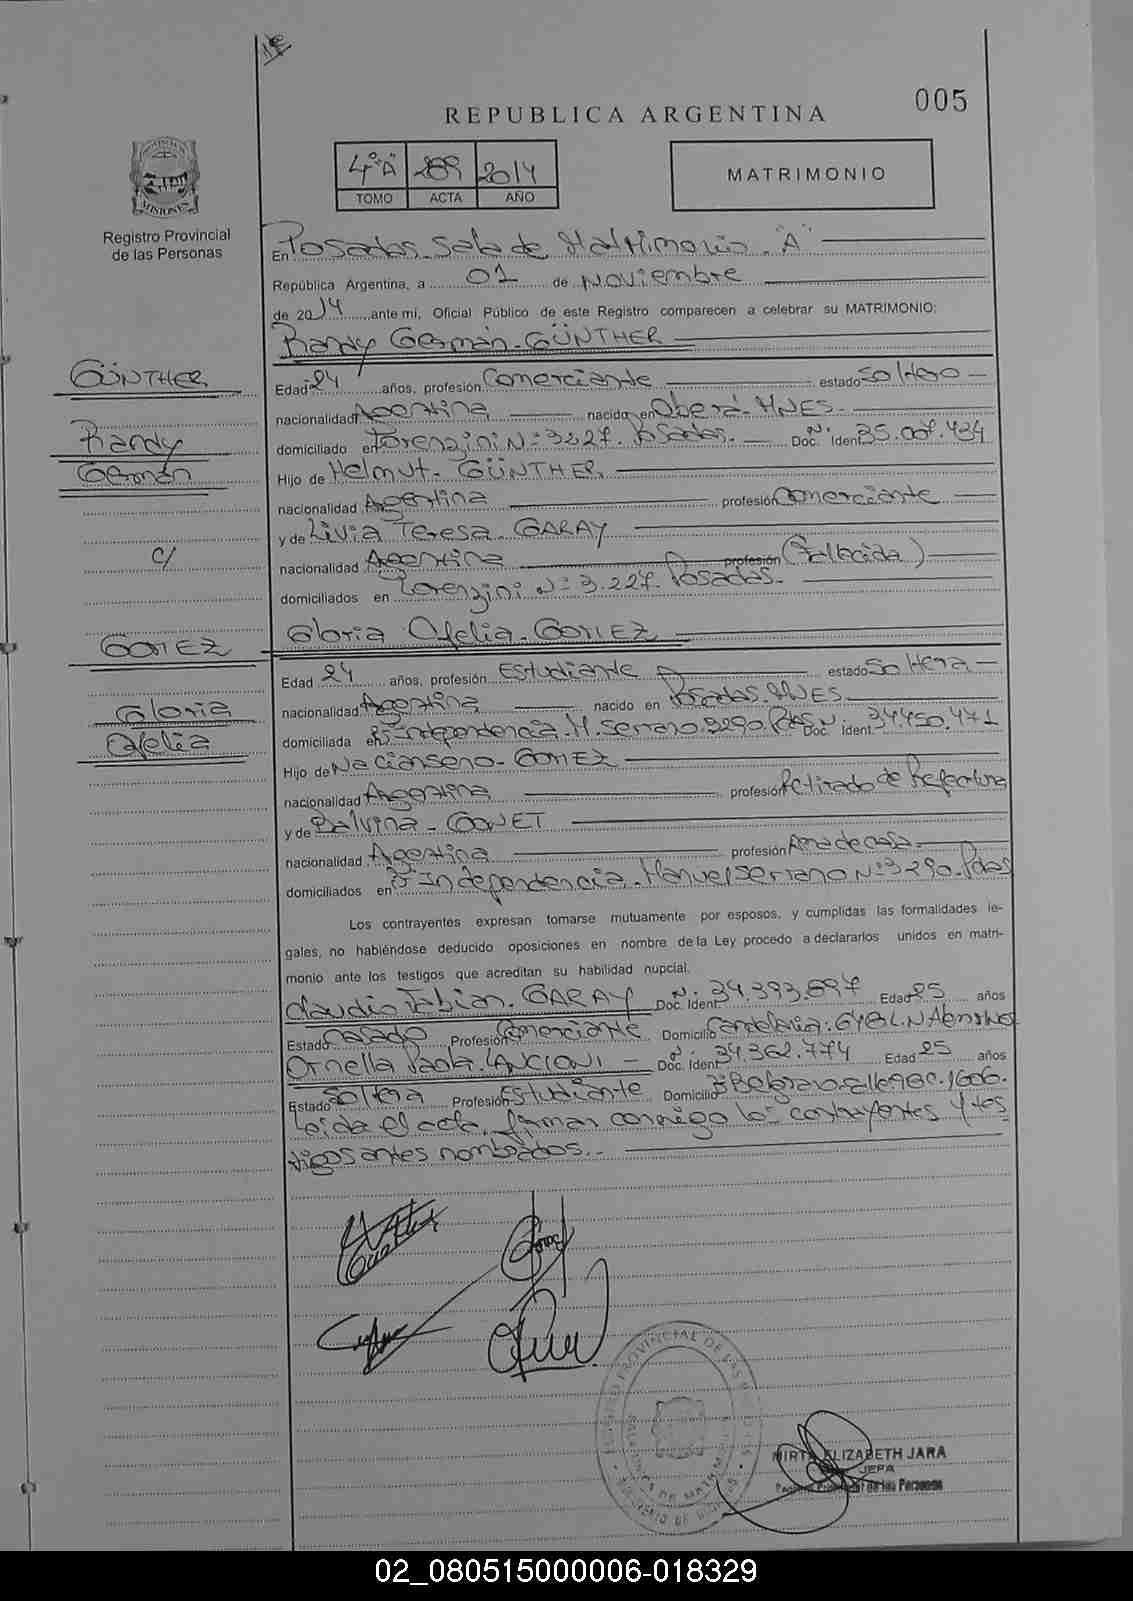 005
REPUBLICA ARGENTINA
4º"A" 289 2014
TOMO ACTA AÑO
MATRIMONIO
PROVINCIA DE
MISIONES
Registro Provincial
de las Personas
En Posadas. Sala de Matrimonio. "A"
República Argentina, a 01 de Noviembre
de 2014 ante mí, Oficial Público de este Registro comparecen a celebrar su MATRIMONIO:
Randy Germán. GÜNTHER
GÜNTHER
Randy
Germán
c/
GOMEZ
Gloria
Ofelia
Edad 24 años, profesión Comerciante estado Soltero
nacionalidad Argentina nacido en Oberá. MNES.
domiciliado en Lorenzini Nº 3227. Posadas. Doc. Ident. 35.007.434
Hijo de Helmut. GÜNTHER.
nacionalidad Argentina profesión Comerciante
y de Livia Teresa. GARAY
nacionalidad Argentina profesión (Fallecida)
domiciliados en Lorenzini Nº 3.227. Posadas.
Gloria Ofelia. GOMEZ
Edad 24 años, profesión Estudiante estado Soltera
nacionalidad Argentina nacido en Posadas. MNES
domiciliada en Bº Independencia. M. Serrano. 3290. Pdas Nº Doc. Ident. 34.450.471
Hijo de Nacianseno. GOMEZ
nacionalidad Argentina profesión Retirado de Prefectura
y de Balvina. GONET
nacionalidad Argentina profesión Ama de casa
domiciliados en Bº Independencia. Manuel Serrano Nº 3290. Pdas
Los contrayentes expresan tomarse mutuamente por esposos, y cumplidas las formalidades le-
gales, no habiéndose deducido oposiciones en nombre de la Ley procedo a declararlos unidos en matri-
monio ante los testigos que acreditan su habilidad nupcial.
Claudio Fabian. GARAY Nº Doc. Ident. 34.393.697 Edad 25 años
Estado Casado Profesión Comerciante Domicilio Candelaria.
Ornella Paola. LANCIONI Nº Doc. Ident. 34.362.774 Edad 25 años
Estado Soltera Profesión Estudiante Domicilio Bº Belgrano. 1606.
Leida el acta, firman conmigo los contrayentes y tes
tigos antes nombrados.
MIRTA ELIZABETH JARA
JEFA
Registro Provincial de las Personas
02_080515000006-018329